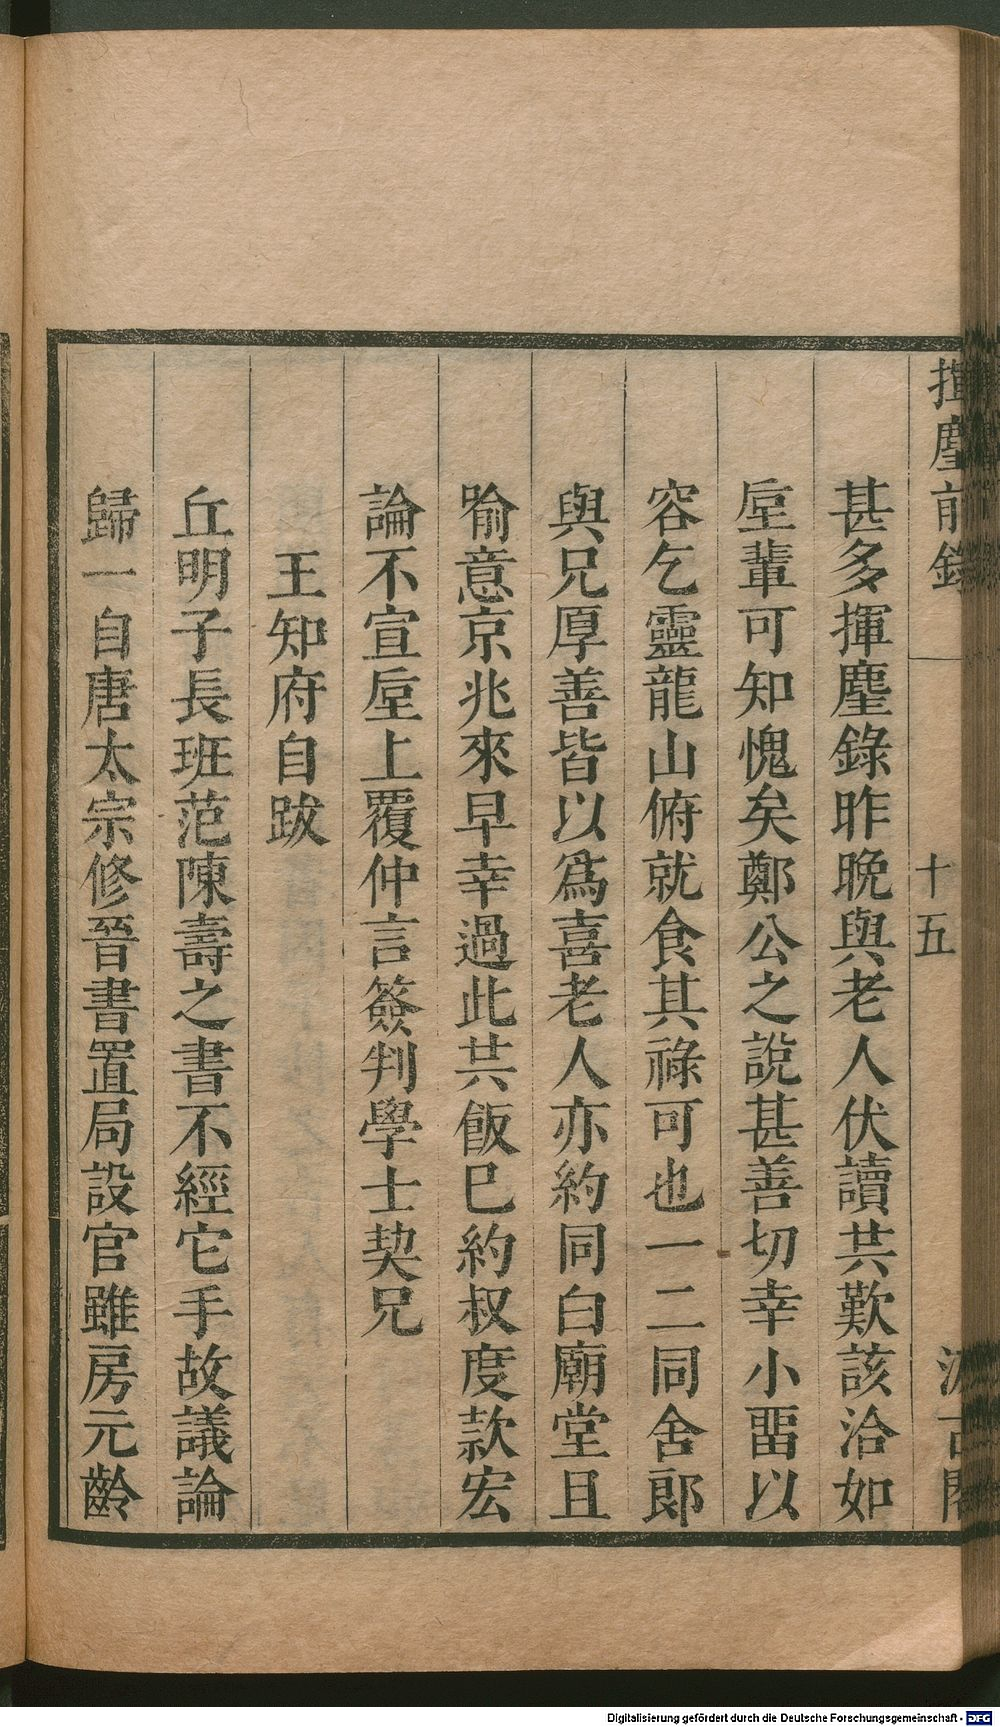 揮麈前錄
十五
汲古閣
甚多揮麈錄昨晚與老人伏讀共歎該洽如
垕輩可知愧矣鄭公之說甚善切幸小畱以
容乞靈龍山俯就食其祿可也一二同舍郎
與兄厚善皆以爲喜老人亦約同白廟堂且
喻意京兆來早幸過此共飯巳約叔度款宏
論不宣垕上覆仲言簽判學士契兄
王知府自跋
丘明子長班范陳壽之書不經它手故議論
歸一自唐太宗修晉書置局設官雖房元齡
Digitalisierung gefördert durch die Deutsche Forschungsgemeinschaft - DFG